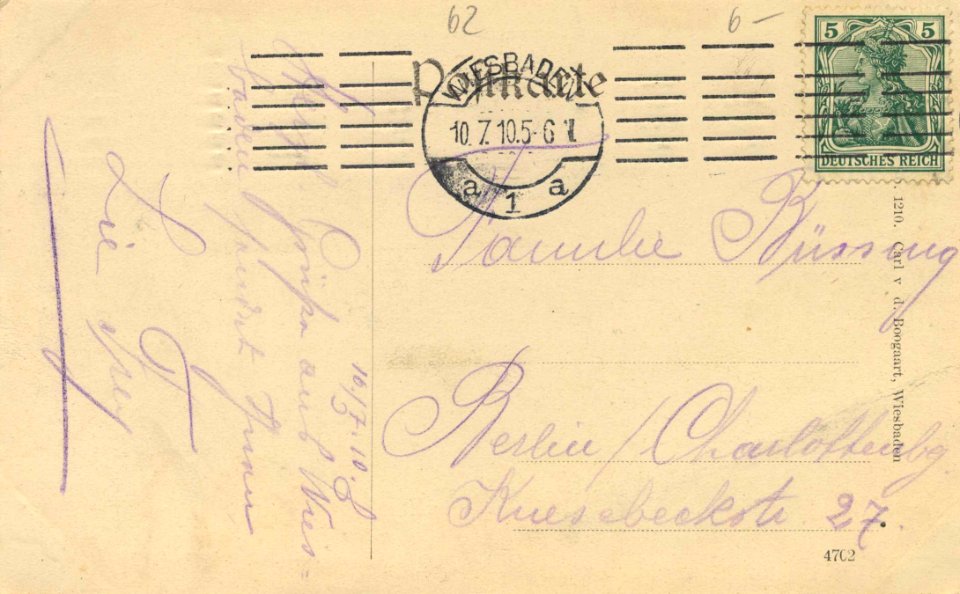 62
6-
Postkarte
5 5
DEUTSCHES REICH
WIESBADEN
10.7.10.5-6
a 1 a
Familie Büssing
Berlin/Charlottenbg.
Knesebeckstr 27.
10/7.10.
Herzl. Grüsse aus Wies-
baden sendet Ihnen
1210. Carl v d. Boogaart, Wiesbaden
4702